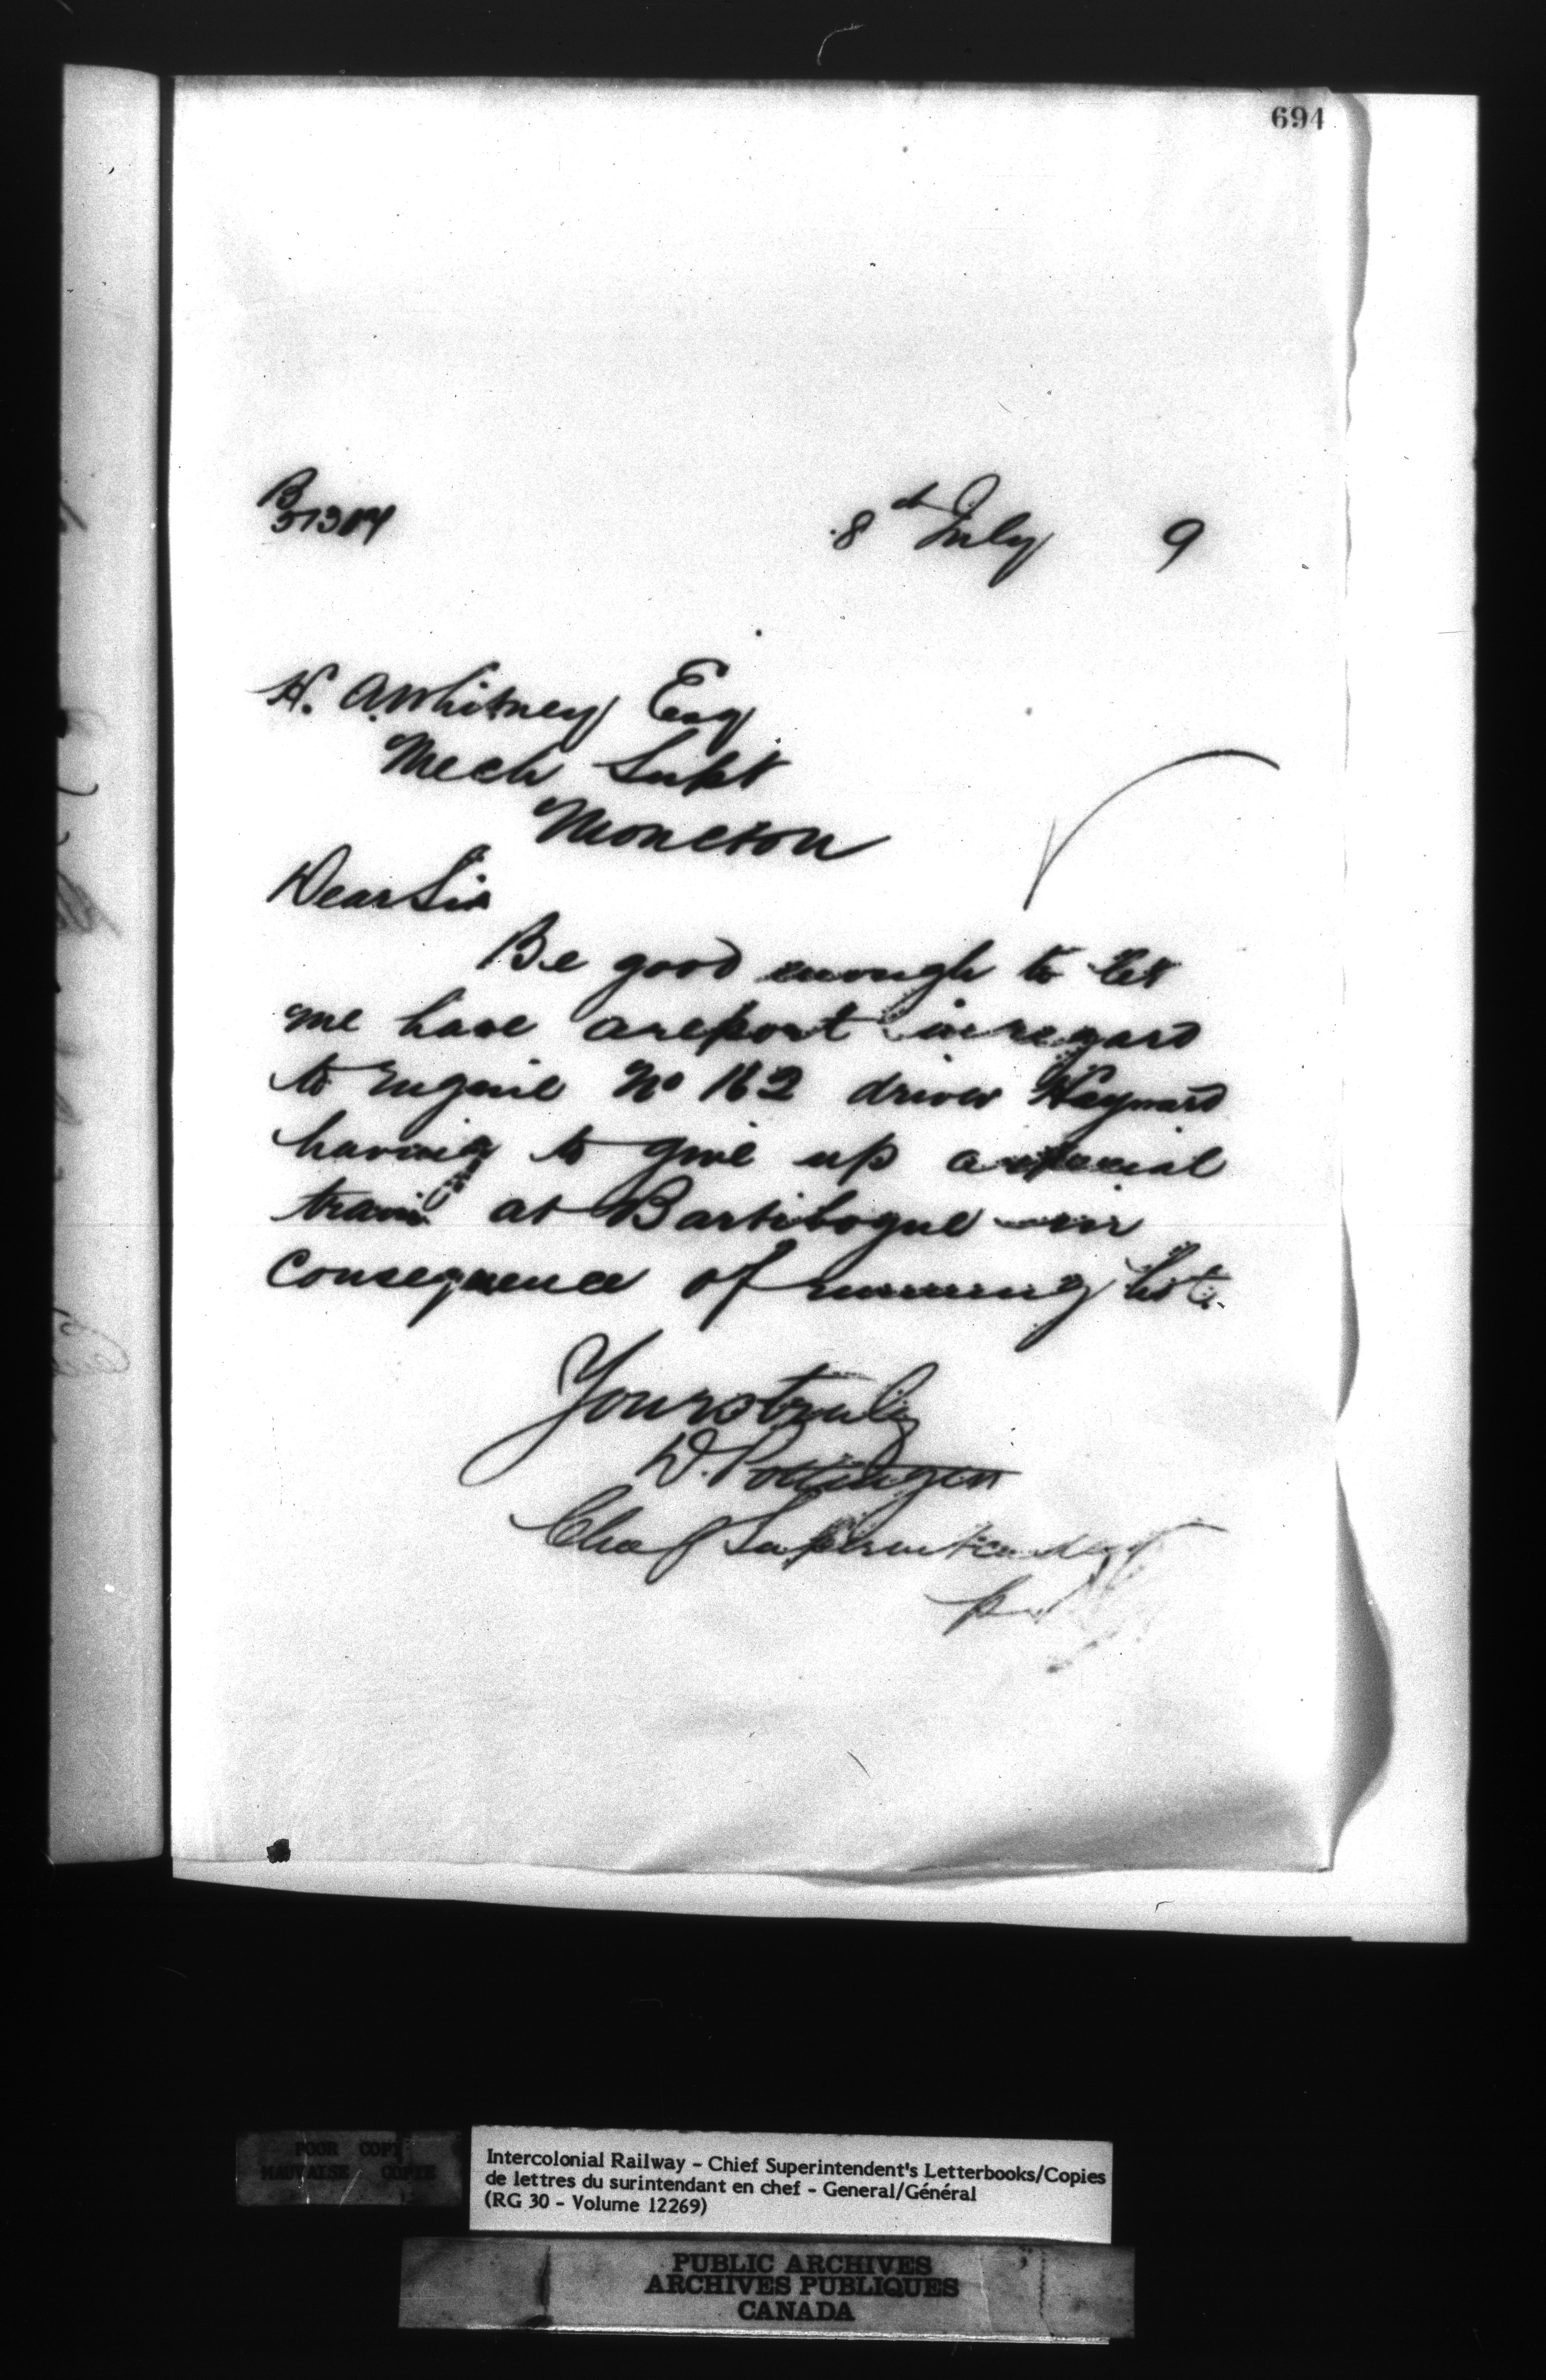 694
B
51304
8th July 9
H. A. Whitney Esq
Mech Supt
Moncton
Dear Sir
Be good enough to let
me have a report in regard
to Engine No 162 driver Hayward
having to give up a special
train at Bartibogue in
consequence of running hot.
Yours truly
D. Pottinger
Chief Superintendent
per
POOR COPY
MAUVAISE COPIE
Intercolonial Railway - Chief Superintendent's Letterbooks/Copies
de lettres du surintendant en chef - General/Général
(RG 30 - Volume 12269)
PUBLIC ARCHIVES
ARCHIVES PUBLIQUES
CANADA